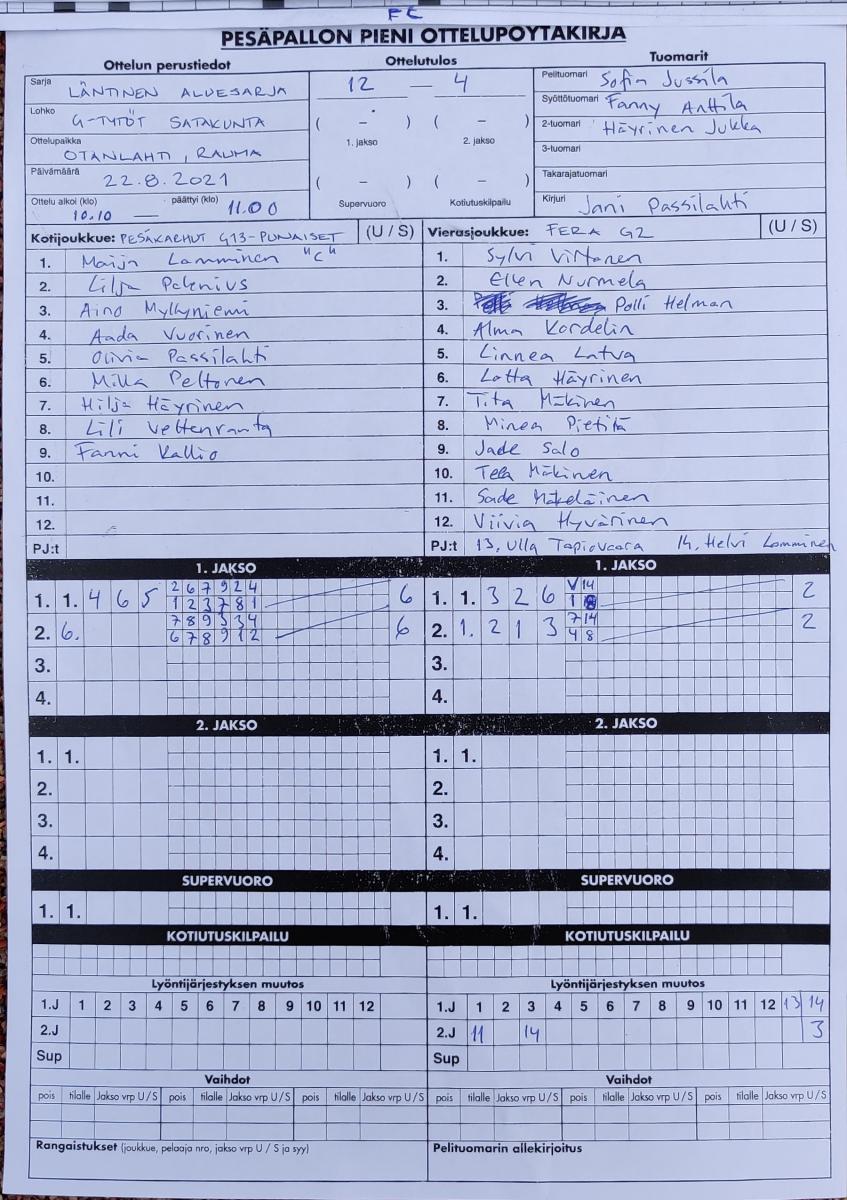 FE
PESÄPALLON PIENI OTTELUPÖYTÄKIRJA
Ottelun perustiedot
Ottelutulos
Tuomarit
Sarja LÄNTINEN ALUESARJA
12 — 4
Pelituomari Sofia Jussila
Lohko G-TYTÖT SATAKUNTA
( – ) ( – )
Syöttötuomari Fanny Anttila
1. jakso 2. jakso
2-tuomari Häyrinen Jukka
Ottelupaikka OTANLAHTI, RAUMA
3-tuomari
Päivämäärä 22.8.2021
( – ) ( – )
Takarajatuomari
Ottelu alkoi (klo) 10.10 — päättyi (klo) 11.00
Supervuoro Kotiutuskilpailu
Kirjuri Jani Passilahti
Kotijoukkue: PESÄKARHUT G13-PUNAISET (U / S)
Vierasjoukkue: FERA G2 (U / S)
1. Maija Lamminen "C"
1. Sylvi Virtanen
2. Lilja Paknius
2. Ellen Nurmela
3. Aino Myllyniemi
3. Polli Helman
4. Aada Vuorinen
4. Alma Kordelin
5. Olivia Passilahti
5. Linnea Latva
6. Milla Peltonen
6. Lotta Häyrinen
7. Hilja Häyrinen
7. Tita Mäkinen
8. Lili Veltenranta
8. Minea Pietilä
9. Fanni Kallio
9. Jade Salo
10.
10. Tea Mäkinen
11.
11. Sade Mäkeläinen
12.
12. Viivia Hyvärinen
PJ:t
PJ:t 13, Ulla Tapiovaara 14, Helvi Lamminen
1. JAKSO
1. JAKSO
1. 1. 4 6 5 2 6 7 9 2 4 6
1 2 3 7 8 1
1. 1. 3 2 6 V 14 2
1
2. 6. 7 8 9 3 3 4 6
6 7 8 9 1 2
2. 1. 2 1 3 7 14 2
4 8
3.
3.
4.
4.
2. JAKSO
2. JAKSO
1. 1.
1. 1.
2.
2.
3.
3.
4.
4.
SUPERVUORO
SUPERVUORO
1. 1.
1. 1.
KOTIUTUSKILPAILU
KOTIUTUSKILPAILU
Lyöntijärjestyksen muutos
Lyöntijärjestyksen muutos
1.J 1 2 3 4 5 6 7 8 9 10 11 12
1.J 1 2 3 4 5 6 7 8 9 10 11 12 13 14
2.J
2.J 11 14 3
Sup
Sup
Vaihdot
Vaihdot
pois tilalle Jakso vrp U/S pois tilalle Jakso vrp U/S pois tilalle Jakso vrp U/S
pois tilalle Jakso vrp U/S pois tilalle Jakso vrp U/S pois tilalle Jakso vrp U/S
Rangaistukset (joukkue, pelaaja nro, jakso vrp U / S ja syy)
Pelituomarin allekirjoitus